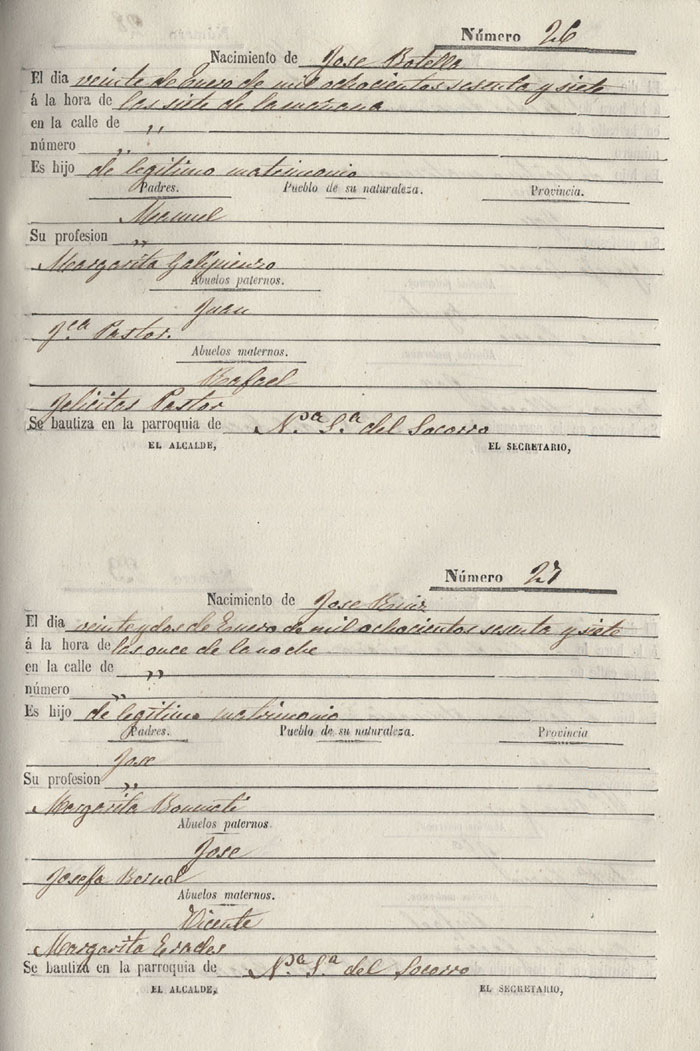 Número 26
Nacimiento de Jose Botella
El dia veinte de Enero de mil ochocientos sesenta y siete
á la hora de las siete de la mañana
en la calle de "
número "
Es hijo de legitimo matrimonio
Padres. Pueblo de su naturaleza. Provincia.
Manuel
Su profesion "
Margarita Galipienzo
Abuelos paternos.
Juan
Fca Pastor.
Abuelos maternos.
Rafael
Felicitas Pastor
Se bautiza en la parroquia de Nª Sª del Socorro
EL ALCALDE, EL SECRETARIO,
Número 27
Nacimiento de Jose
El dia veinte y dos de Enero de mil ochocientos sesenta y siete
á la hora de las once de la noche
en la calle de "
número "
Es hijo de legitimo matrimonio
Padres. Pueblo de su naturaleza. Provincia
Jose
Su profesion "
Margarita Bonmati
Abuelos paternos.
Jose
Josefa Bernal
Abuelos maternos.
Vicente
Margarita Erades
Se bautiza en la parroquia de Nª Sª del Socorro
EL ALCALDE, EL SECRETARIO,